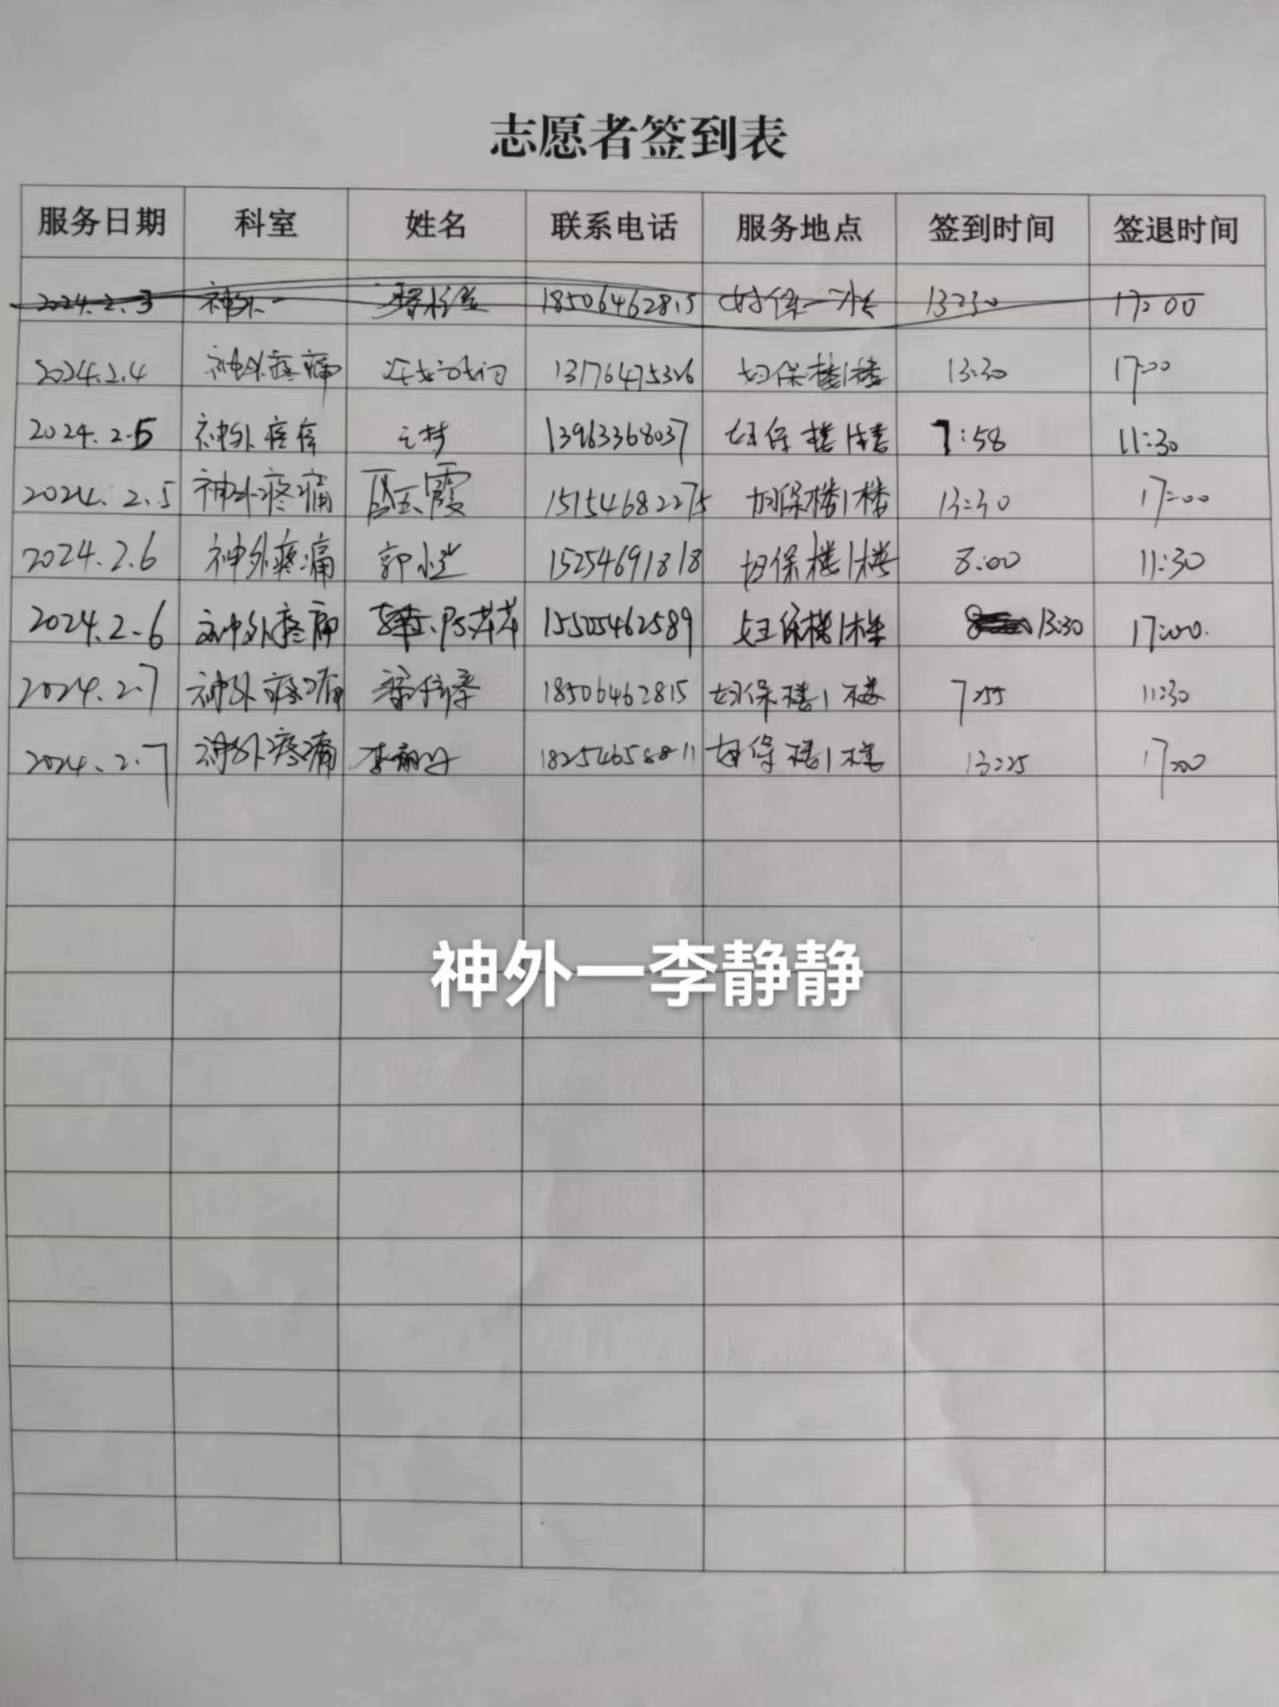 志愿者签到表
服务日期 科室 姓名 联系电话 服务地点 签到时间 签退时间
2024.2.3 神外一 18506462815 13:30 17:00
2024.2.4 神外疼痛 13176475326 妇保楼1楼 13:30 17:00
2024.2.5 神外疼痛 13963368037 妇保楼1楼 7:58 11:30
2024.2.5 神外疼痛 霞 15154682275 妇保楼1楼 13:30 17:00
2024.2.6 神外疼痛 郭 15254691818 妇保楼1楼 8:00 11:30
2024.2.6 神外疼痛 15505462589 妇保楼1楼 13:30 17:00.
2024.2.7 神外疼痛 18506462815 妇保楼1楼 7:55 11:30
2024.2.7 神外疼痛 李 18254658811 妇保楼1楼 13:25 17:00
神外一李静静